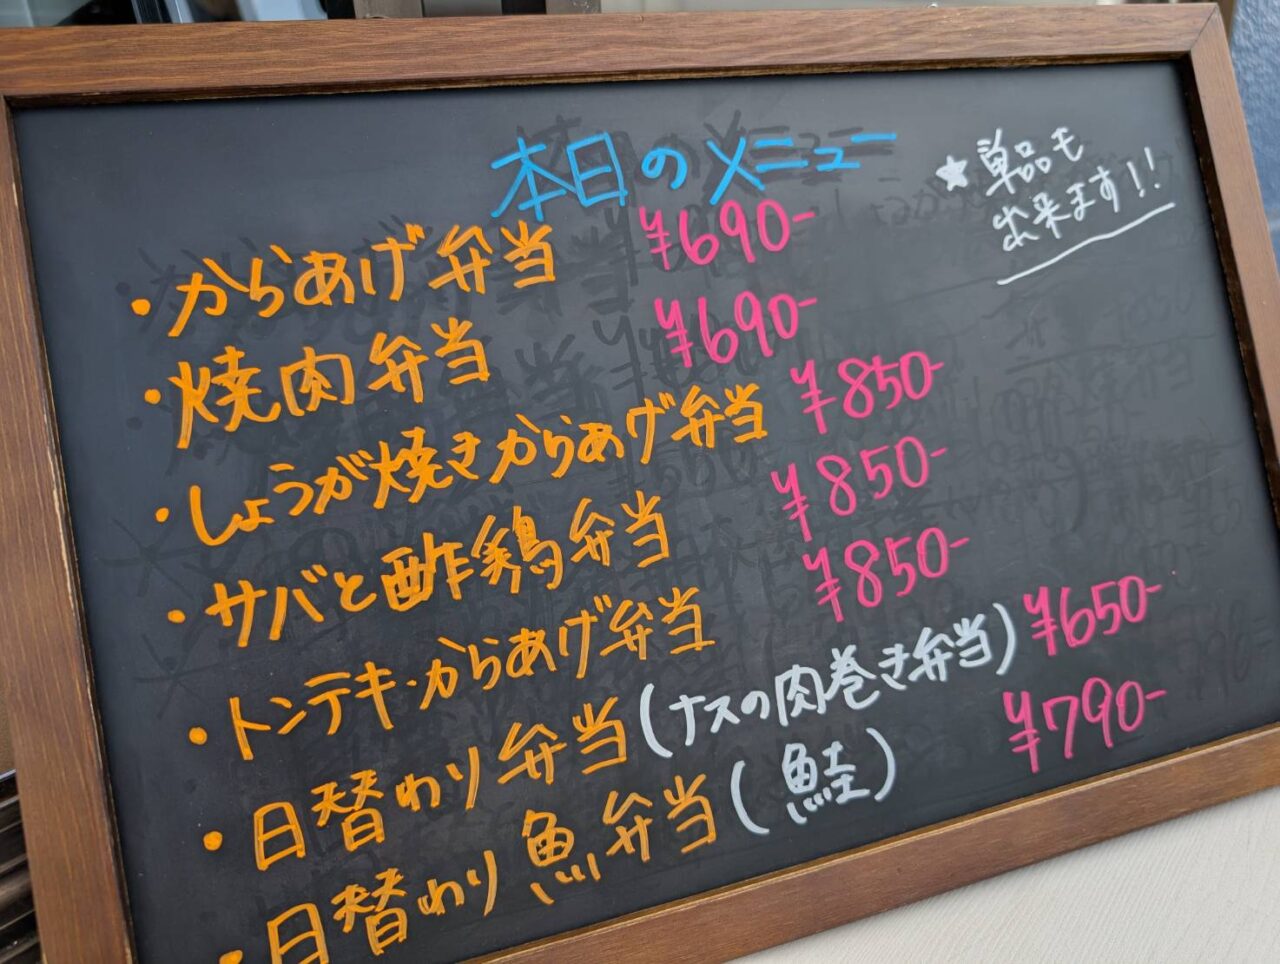 本日のメニュー
★単品も
出来ます!!
・からあげ弁当 ¥690-
・焼肉弁当 ¥690-
・しょうが焼きからあげ弁当 ¥850-
・サバと酢鶏弁当 ¥850-
・トンテキ・からあげ弁当 ¥850-
・日替わり弁当(ナスの肉巻き弁当) ¥650-
・日替わり魚弁当(鮭) ¥790-